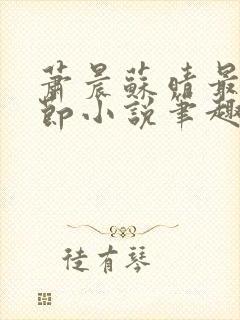 蕭晨蘇晴最
節小說筆趣
徒有琴